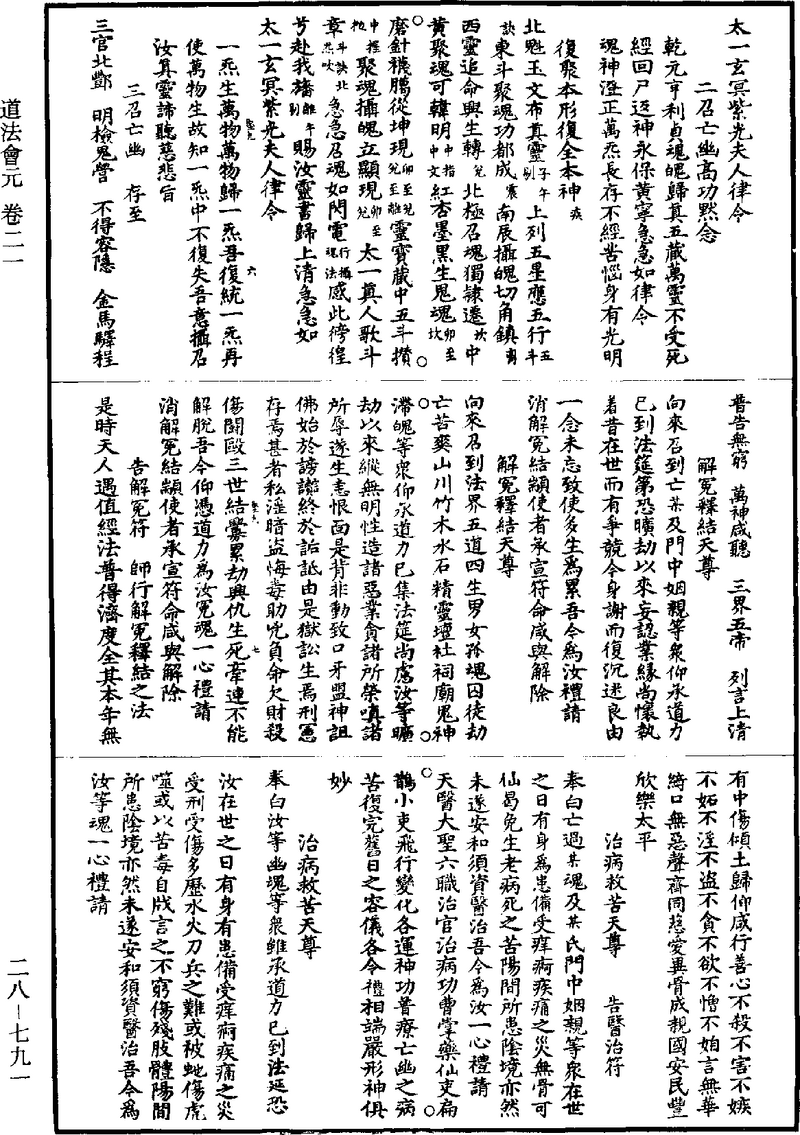 太一玄冥紫光夫人律令
二召亡幽高功默念
乾元亨利貞魂魄歸真五藏萬靈不受死
經回尸返神永保黃寧急急如律令
魂神澄正萬炁長存不經苦惱身有光明
復聚本形復全本神
北魁玉文布真靈子午上列五星應五行五斗
訣東斗聚魂功都成震南辰攝魄切角鎮
西靈追命與生轉兌北極召魂獨隸遷坎中
黃聚魂可韓明中指中文紅杏墨黑生鬼魂卯至坎
磨針襪鵬從坤現卯至兌兌至離靈寶藏中五斗攢
中指聚魂攝魄立顯現卯至兌太一真人歌斗
章斗訣北炁吹急急召魂如閃電行攝魂法感此徬徨
兮赴我旛離午賜汝靈書歸上清急急如
太一玄冥紫光夫人律令
一炁生萬物萬物歸一炁吾復統一炁再
使萬物生故知一炁中不復失吾意攝召
汝真靈諦聽慈悲旨
三召亡幽 存至
三官北酆 明檢鬼營 不得容隱 金馬驛程
普告無窮 萬神咸聽 三界五帝 列言上清
解冤釋結天尊
向來召到亡某及門中姻親等衆仰承道力
已到法筵第恐曠劫以來妄認業緣尚懷執
着昔在世而有爭競今身謝而復沉迷良由
一念未忘致使多生為累吾今為汝禮請
消解冤結顓使者承宣符命咸與解除
解冤釋結天尊
向來召到法界五道四生男女孤魂囚徒劫
亡苦爽山川竹木水石精靈壇社祠廟鬼神
滯魄等衆仰承道力已集法筵尚慮汝等曠
劫以來縱無明性造諸惡業貪諸所榮嗔諸
所辱遂生恚恨面是背非動致口牙盟神詛
佛始於謗讟終於詬詆由是獄訟生焉刑憲
存焉甚者私淫暗盜侮毒助兇負命欠財殺
傷鬬毆三世結釁累劫興仇生死牽連不能
解脫吾今仰憑道力為汝冤魂一心禮請
消解冤結顓使者承宣符命咸與解除
告解冤符 師行解冤釋結之法
是時天人遇值經法普得濟度全其本年無
有中傷傾土歸仰咸行善心不殺不害不嫉
不妬不淫不盜不貪不欲不憎不㛍言無華
綺口無惡聲齊同慈愛異骨成親國安民豐
欣樂太平
治病救苦天尊 告醫治符
奉白亡過某魂及某氏門中姻親等衆在世
之日有身為患備受痒痾疾痛之災無骨可
仙曷免生老病死之苦陽間所患陰境亦然
未遂安和須資醫治吾今為汝一心禮請
天醫大聖六職治官治病功曹掌藥仙吏扁
鵲小吏飛行變化各運神功普療亡幽之病
苦復完舊日之容儀各令禮相端嚴形神俱
妙
治病救苦天尊
奉白汝等幽魂等衆雖承道力已到法筵恐
汝在世之日有身有患備受痒痾疾痛之災
受刑受傷多歷水火刀兵之難或被蛇傷虎
噬或以苦毒自戕言之不窮傷殘肢體陽間
所患陰境亦然未遂安和須資醫治吾今為
汝等魂一心禮請
道法會元 卷二一
二八—七九一